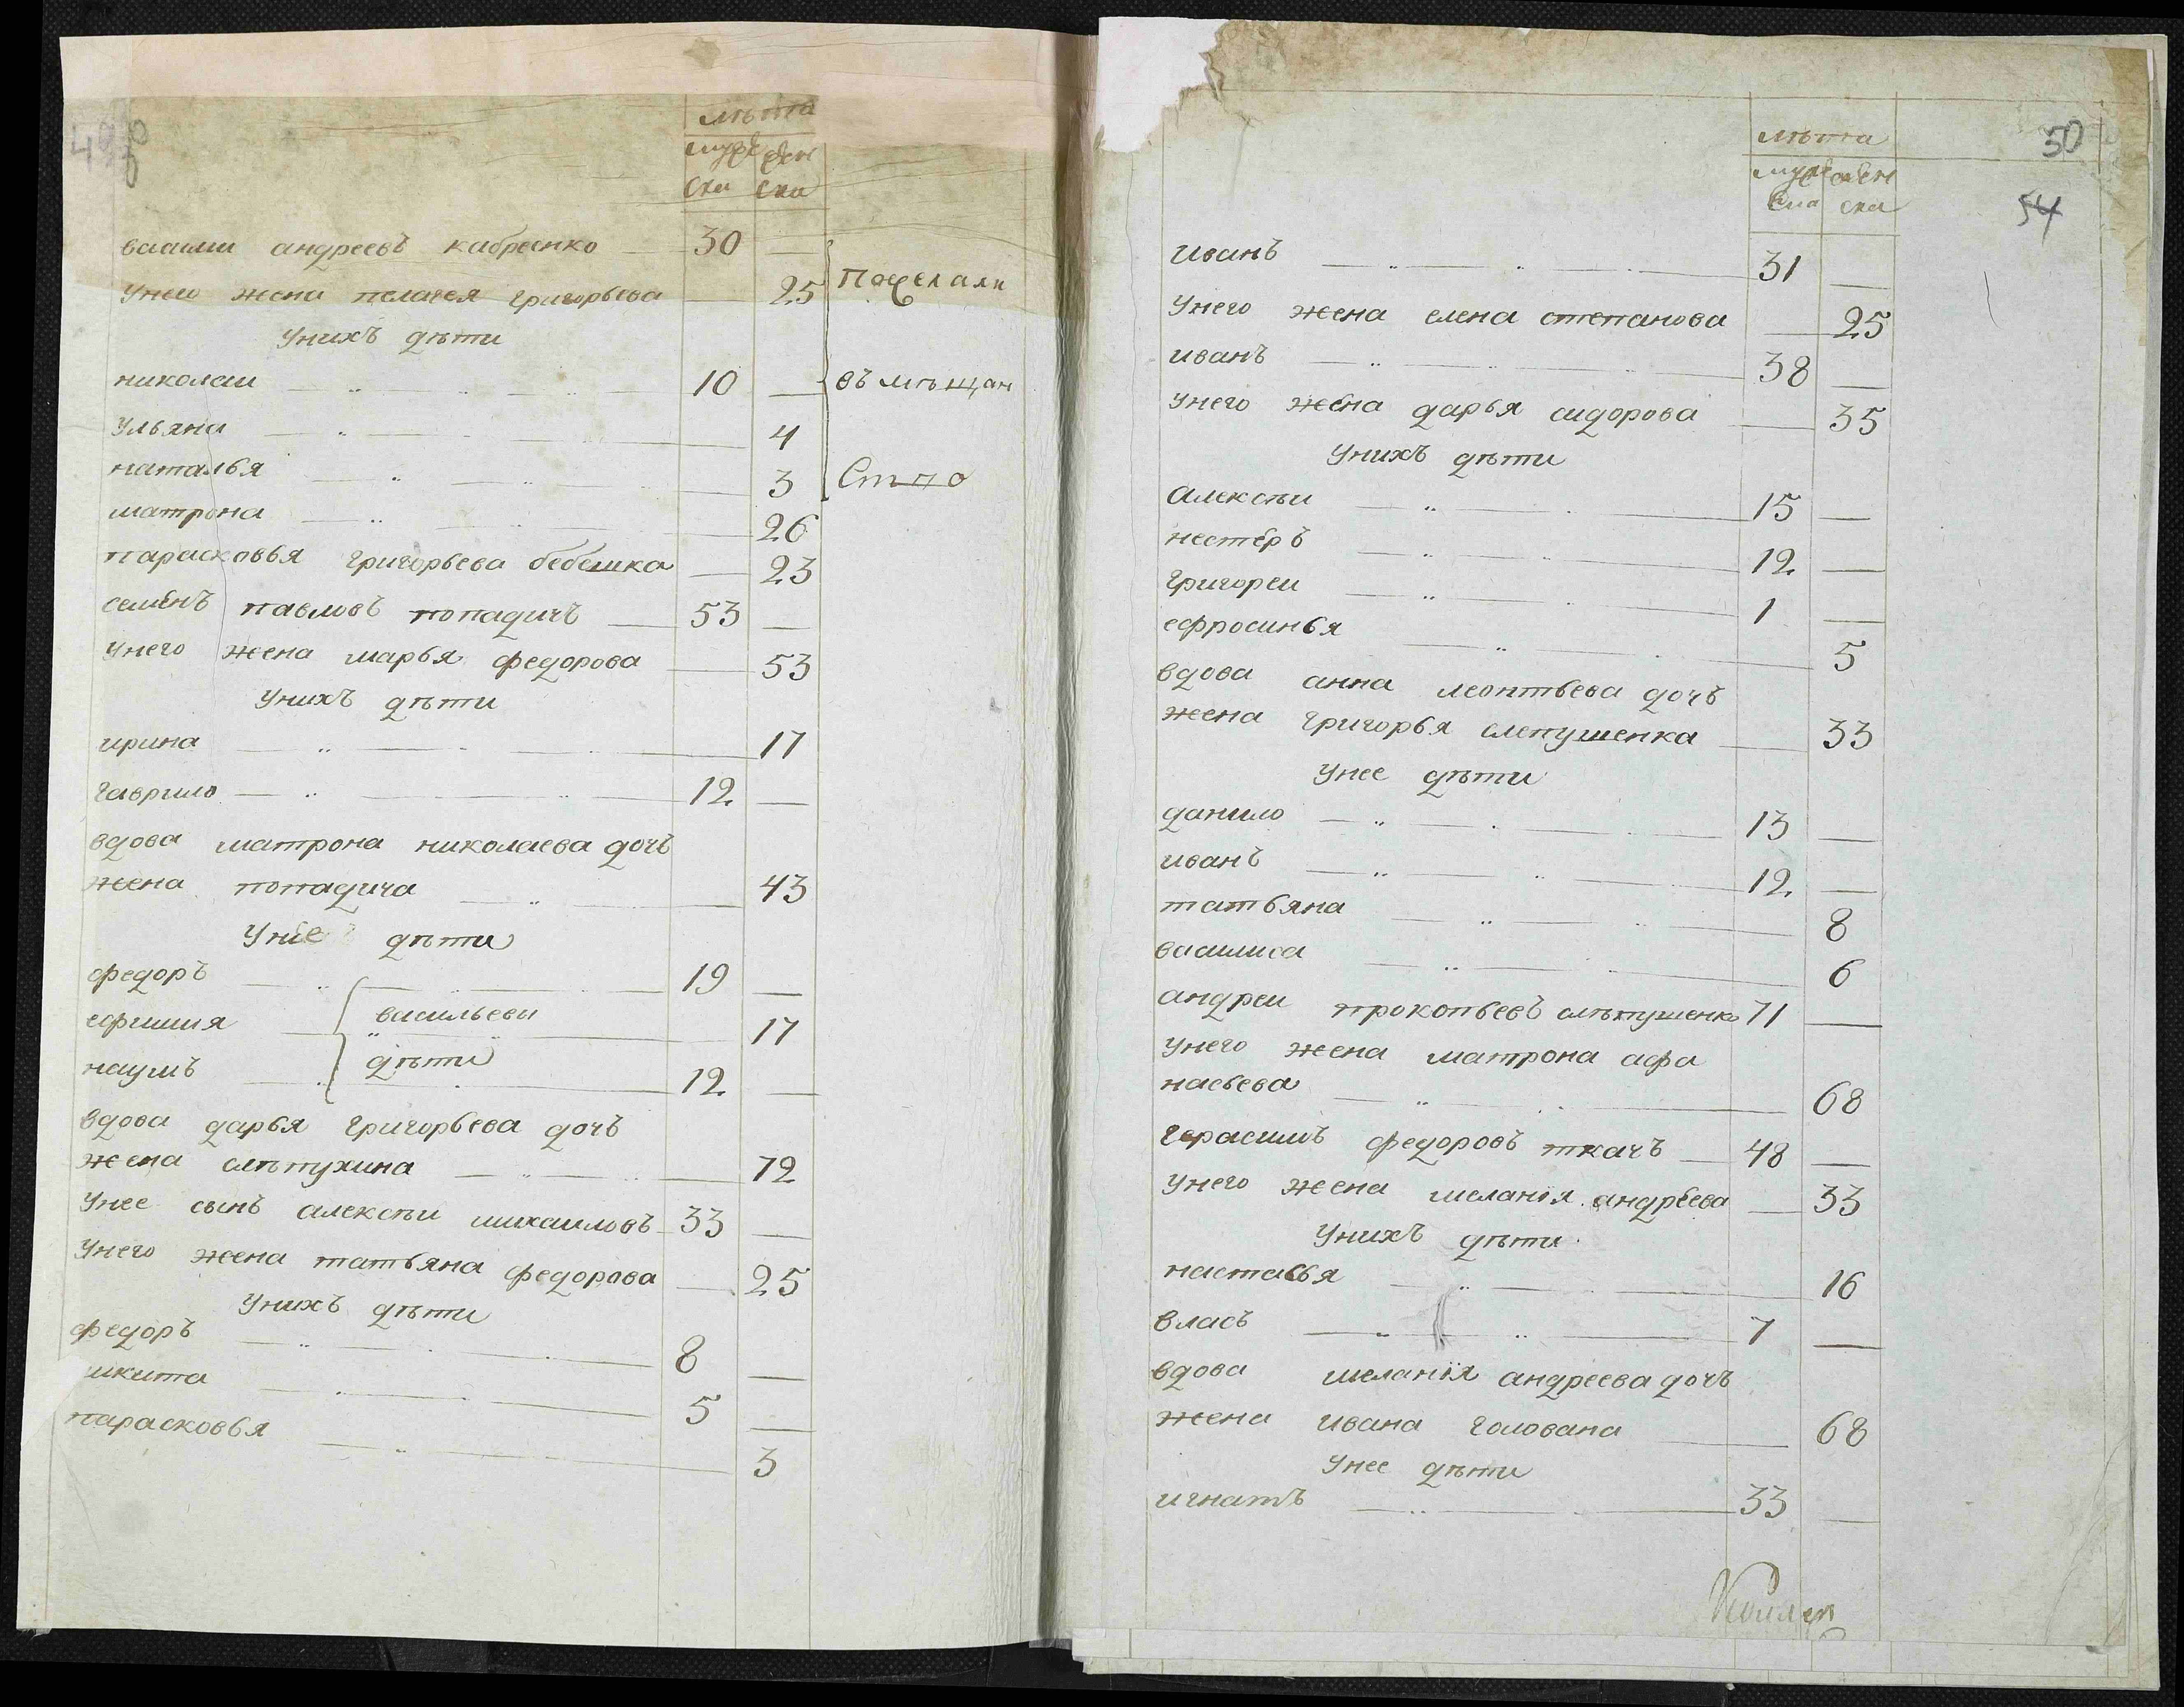 лѣта
муже женска
ска
василии андреевъ кабрѣнко 30 —
унего жена пелагея григорьева — 25 Пожелали
унихъ дѣти
николаи 10 — въ мѣщан
ульяна — 4
наталья — 3 Ство
матрона — 26
парасковья григорьева бебешка — 23
семенъ павловъ попадичъ 53 —
унего жена марья федорова — 53
унихъ дѣти
ирина — 17
гаврило 12 —
вдова матрона николаева дочь
жена попадича — 43
унее дѣти
федоръ 19 —
ефимия васильевы — 17
наумъ дѣти 12 —
вдова дарья григорьева дочь
жена слѣпухина — 72
унее сынъ алексѣи михаиловъ 33 —
унего жена татьяна федорова — 25
унихъ дѣти
федоръ 8 —
икита 5 —
парасковья — 3
50
54
лѣта
муже женска
ска
иванъ 31 —
унего жена елена степанова — 25
иванъ 38 —
унего жена дарья сидорова — 35
унихъ дѣти
алексѣи 15 —
нестеръ 12 —
григореи 1 —
ефросинья — 5
вдова анна леонтьева дочь
жена григорья слепушенка — 33
унее дѣти
данило 13 —
иванъ 12 —
татьяна — 8
василиса — 6
андреи прокопьевъ слѣпушенко 71 —
унего жена матрона афа
насьева — 68
герасимъ федоровъ ткачъ 48 —
унего жена меланія андреева — 33
унихъ дѣти
настасья — 16
власъ 7 —
вдова меланія андреева дочь
жена ивана голована — 68
унее дѣти
игнатъ 33 —